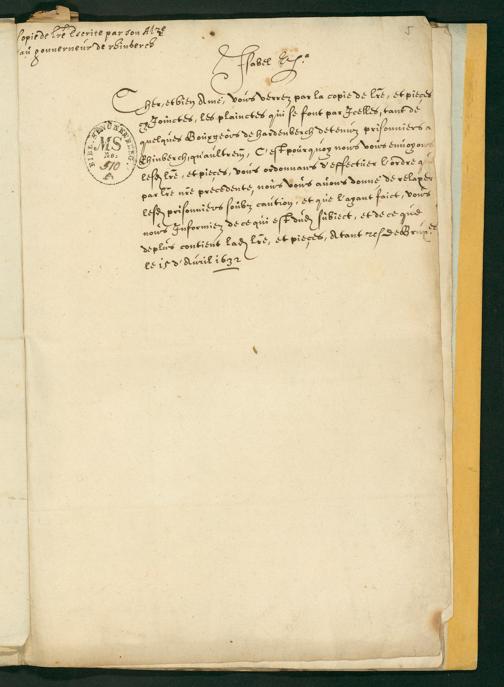 Copie de lr̃e Escrite par son Alze
au gouverneur de rhinberck
5
Isabel &c.a
Cher, et bien Amé, Vous verrez par la copie de lr̃e, et pieces
cy Joinctes, les plainctes qui se font par Icelles, tant de
quelques Bourgeois de hardenberch detenuz prisonniers a
Rhinberch, qu'aultremt, C'est pourquoy nous vous envoyons
lesd. lr̃e, et pieces, vous ordonnans d'effectuer l'ordre q
par lr̃e nr̃e precedente, nous vous avons donné de relaxer
lesd. prisonniers soubz caution, et que l'ayant faict, vous
nous Informiez de ce qui est dud. subject, et de ce que
de plus contient lad. lr̃e, et pieces, Atant &c. de Brux.les
le 15 d'Avril 1632
BIBL.
MS
No:
510
A